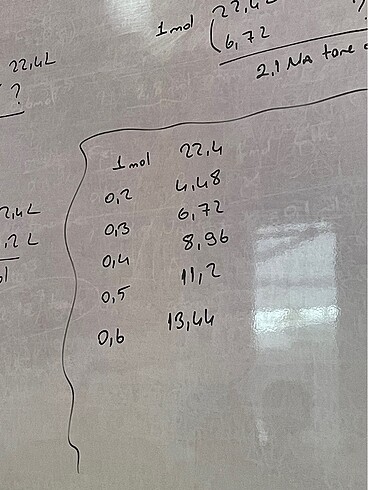 1 mol 22,4L
6,72
2.1 NA tane
22,4L
?
2,4L
,2 L
1 mol 22,4
0,2 4,48
0,3 6,72
0,4 8,96
0,5 11,2
0,6 13,44